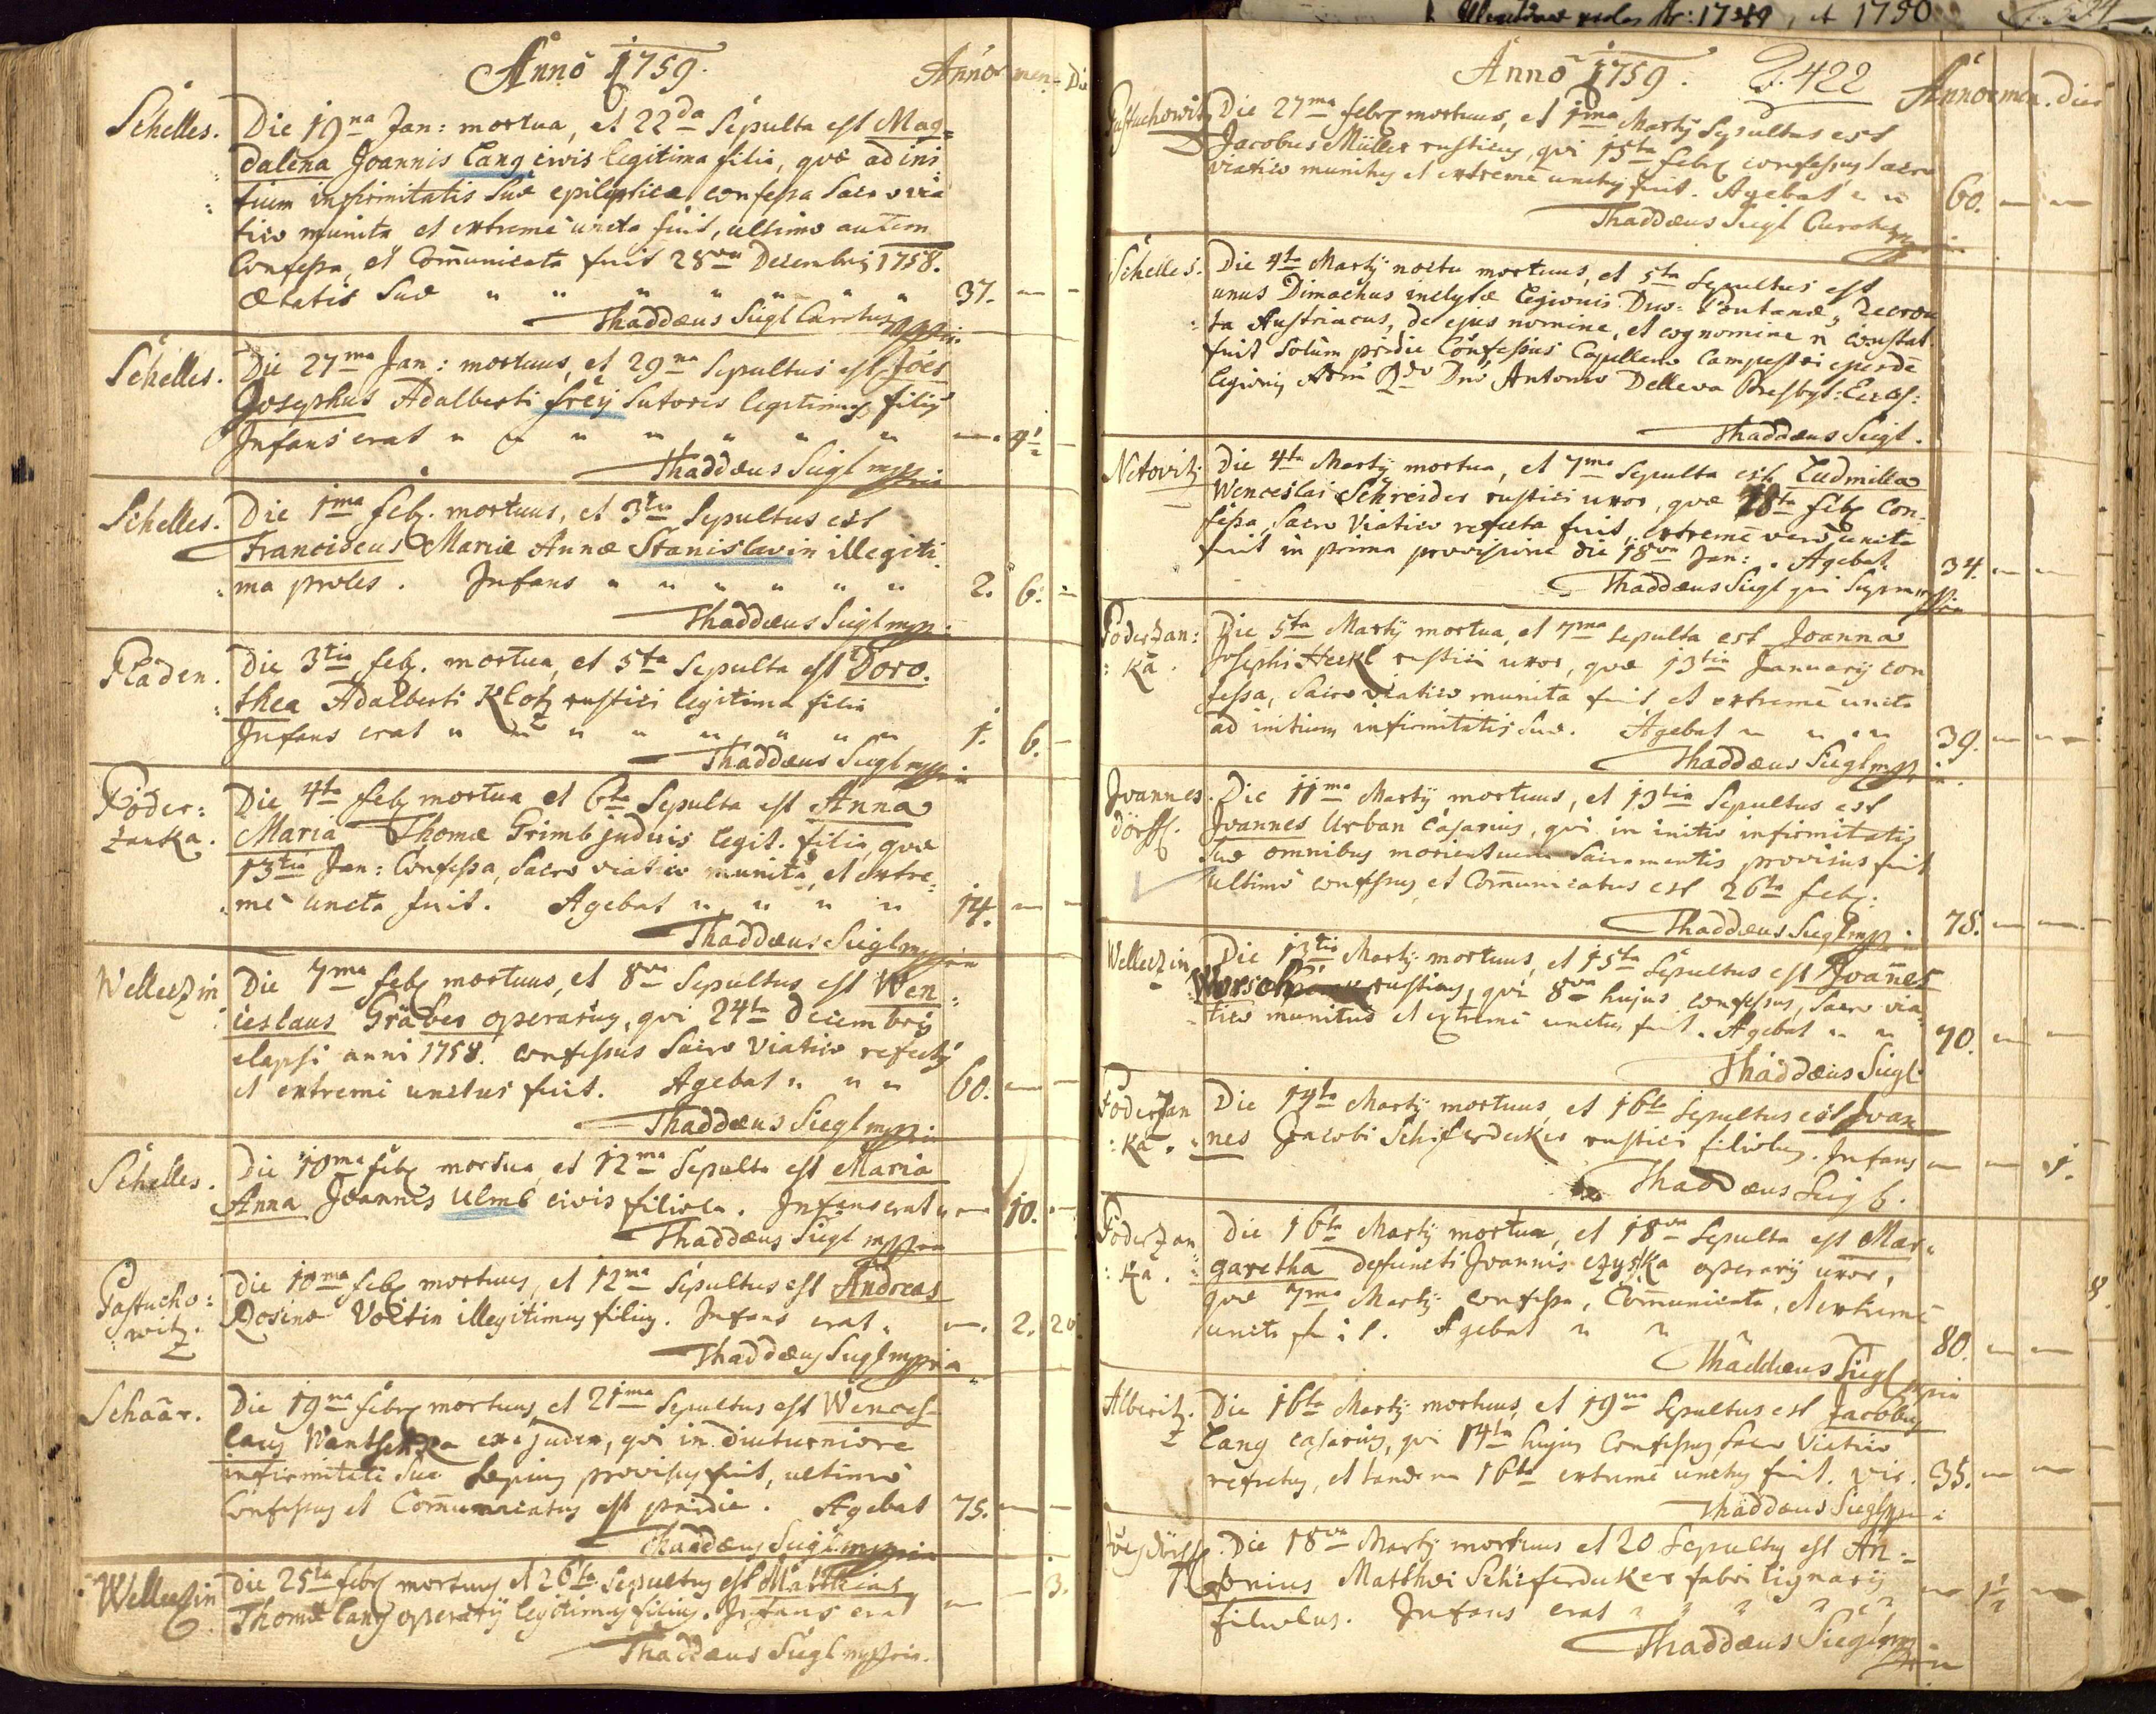 Illegitimae proles Ao: 1749, et 1750
Anno 1759.
Annor men: Die
Schelles. Die 19na Jan: mortua, et 22da Sepulta est Mag=
dalena Joannis Lang civis legitima filia, quae ad ini
tium infirmitatis suae epilepticae confessa Sacro via
tico munita et extremè uncta fuit, ultimo autem
Confessa, et Com̄unicata fuit 28va Decembris 1758.
AEtatis Suae " " " " " " " 37. — -
Thaddaeus Siegl Curatus mppria.
Schelles. Die 27ma Jan: mortuus, et 29na Sepultus est Jo͞es
Josephus Adalberti Freÿ Sutoris legitimus filius
Infans erat " " " " " " " —. 9½ —
Thaddaeus Siegl mppria
Schelles. Die 1ma Feb. mortuus, et 3tia Sepultus est
Franciscus Mariae Annae Stanislavin illegiti
ma proles. Infans " " " " " " 2. 6. -
Thaddaeus Siegl mpp.
Pladen. Die 3tia Feb. mortua, et 5ta Sepulta est Doro.
thea Adalberti Klotz rustici legitima filia
Infans erat " " " " " " " 1. 6. —
Thaddaeus Siegl mppria
Poder= Die 4ta Feb. mortua et 6ta Sepulta est Anna
zanka. Maria Thomae Grimb judicis legit. filia, quae
13tia Jan: Confessa, Sacro viatico munita, et extre=
mè uncta fuit. Agebat " " " " 14. — -
Thaddaeus Siegl mppria
Welleczin Die 7ma Feb. mortuus, et 8va Sepultus est Wen=
ceslaus Gräber operarius, qui 24ta Decembris
elapsi anni 1758. confessus Sacro Viatico refectus
et extremè unctus fuit. Agebat " " " 60. — —
Thaddaeus Siegl mppria
Schelles. Die 10ma Feb. mortua, et 12ma Sepulta est Maria
Anna Joannis Ulmb civis filiola. Infans erat " — 10. —
Thaddaeus Siegl mppria
Pastucho= Die 10ma Feb. mortuus, et 12ma Sepultus est Andreas
witz. Rosinae Voitin illegitimus filius. Infans erat " —. 2. 20.
Thaddaeus Siegl mppria
Schaar. Die 19na Feb. mortuus, et 21ma Sepultus est Wences=
laus exejudex, qui in diuturniore
infirmitate sua saepius provisus fuit, ultimo
Confessus et Com̄unicatus est pridie. Agebat 75. — —
Thaddaeus Siegl mppria
Welleczin Die 25ta Feb. mortuus et 26ta Sepultus est Matthias
Thomae Lang operarÿ legitimus filius. Infans erat — — 3.
Thaddaeus Siegl mppria.
Anno 1759. P. 422
Annor men. Dies
Pastuchowitz Die 27ma Feb. mortuus, et 1ma Martÿ Sepultus est
Jacobus Müller rusticus, qui 15ta Feb. confessus Sacro
viatico munitus et extremè unctus fuit. Agebat " " 60. — —
Thaddaeus Siegl Curatus mppria
Schelles. Die 4ta Martÿ noctu mortuus, et 5ta Sepultus est
unus Dimachus inclytae legionis Duc: Decrou
ta Austriacus, de ejus nomine, et cognomine n constat.
fuit Solùm pridie Confessus Capellano Campestri ejusdē
legionis Adm Rdo Dno Antonio Delleva Presbyt: Eccles:
Thaddaeus Siegl.
Netovitz Die 4ta Martÿ mortua, et 7ma Sepulta est Ludmilla
Wenceslai Schreider rustici uxor, quae 18ta Feb. Con=
fessa, Sacro Viatico refecta fuit, extremè verò uncta
fuit in prima provisione die 18va Jan: . Agebat 34. — —
Thaddaeus Siegl qui Supra mppria
Poderzan: Die 5ta Martÿ mortua, et 7ma sepulta est Joanna
ka. Josephi Heckl rustici uxor, quae 13tia Januarÿ con
fessa, Sacro viatico munita fuit, et extremè uncta
ad initium infirmitatis suae. Agebat " " " " 39. — —
Thaddaeus Siegl mppria.
Joannes Die 11ma Martÿ mortuus, et 13tia Sepultus est
dörff. Joannes Urban Casarius, qui in initio infirmitatis
suae omnibus morientium Sacramentis provisus fuit
ultimò confessus, et Com̄unicatus est 26ta Feb:
Thaddaeus Siegl mpp. 78. — —
Welleczin Die 13tia Martÿ mortuus, et 15ta Sepultus est Joannes
Worsch rusticus, qui 8va hujus confessus, Sacro via
tico munitus et extremè unctus fuit. Agebat " " 70. — —
Thaddaeus Siegl
Poderzan Die 14ta Martÿ mortuus, et 16ta Sepultus est Joan
ka. nes Jacobi Schiferdeker rustici filiolus. Infans — — 1.
Thaddaeus Siegl.
Poderzan Die 16ta Martÿ mortua, et 18va Sepulta est Mar=
ka. garetha defuncti Joannis operarÿ uxor,
quae 7ma Martÿ confessa, Com̄unicata, et extremè
uncta fuit. Agebat " " " 80. — —
Thaddaeus Siegl mppria
Alberitz. Die 16ta Martÿ mortuus, et 19na Sepultus est Jacobus
Lang casarius, qui 14ta hujus Confessus Sacro Viatico
refectus, et tandem 16ta extremè unctus fuit. vix. 35. — —
Thaddaeus Siegl mpp
Joēsdörff. Die 18va Martÿ mortuus et 20 Sepultus est An=
tonius Matthaei Schiferdeker fabri lignarÿ — 1½ —
filiolus. Infans erat " " " " "
Thaddaeus Siegl mppria